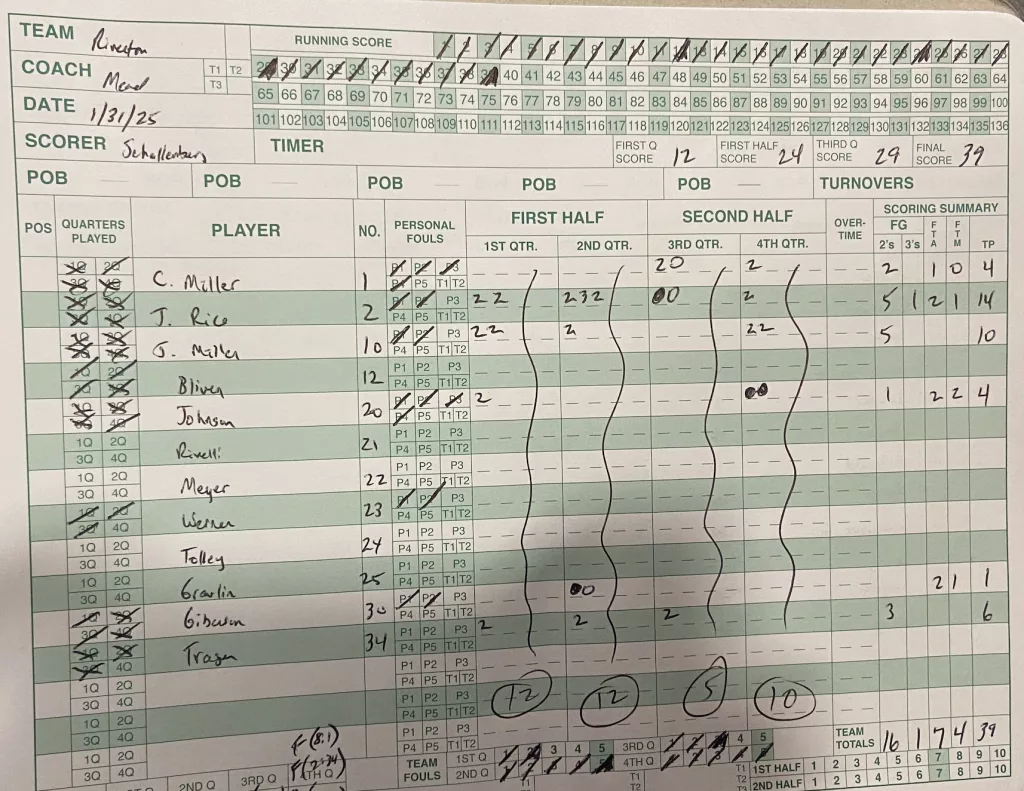 TEAM Riverton
RUNNING SCORE 1 2 3 4 5 6 7 8 9 10 11 12 13 14 15 16 17 18 19 20 21 22 23 24 25 26 27 28
COACH T1 T2 29 30 31 32 33 34 35 36 37 38 39 40 41 42 43 44 45 46 47 48 49 50 51 52 53 54 55 56 57 58 59 60 61 62 63 64
T3
65 66 67 68 69 70 71 72 73 74 75 76 77 78 79 80 81 82 83 84 85 86 87 88 89 90 91 92 93 94 95 96 97 98 99 100
DATE 1/31/25
101 102 103 104 105 106 107 108 109 110 111 112 113 114 115 116 117 118 119 120 121 122 123 124 125 126 127 128 129 130 131 132 133 134 135 136
SCORER Schallenberg TIMER FIRST Q SCORE 12 FIRST HALF SCORE 24 THIRD Q SCORE 29 FINAL SCORE 39
POB POB POB POB POB TURNOVERS
POS QUARTERS PLAYED PLAYER NO. PERSONAL FOULS FIRST HALF SECOND HALF OVER-TIME SCORING SUMMARY
1ST QTR. 2ND QTR. 3RD QTR. 4TH QTR. FG 2's 3's FTA FTM TP
1Q 2Q C. Miller 1 P1 P2 P3 20 2 2 1 0 4
3Q 4Q P4 P5 T1 T2
1Q 2Q J. Rice 2 P1 P2 P3 2 2 2 3 2 00 2 5 1 2 1 14
3Q 4Q P4 P5 T1 T2
1Q 2Q J. Miller 10 P1 P2 P3 2 2 2 2 2 5 10
3Q 4Q P4 P5 T1 T2
1Q 2Q Bliven 12 P1 P2 P3
3Q 4Q P4 P5 T1 T2
1Q 2Q Johnson 20 P1 P2 P3 2 00 1 2 2 4
3Q 4Q P4 P5 T1 T2
1Q 2Q 21 P1 P2 P3
3Q 4Q P4 P5 T1 T2
1Q 2Q Meyer 22 P1 P2 P3
3Q 4Q P4 P5 T1 T2
1Q 2Q Werner 23 P1 P2 P3
3Q 4Q P4 P5 T1 T2
1Q 2Q Tolley 24 P1 P2 P3
3Q 4Q P4 P5 T1 T2
1Q 2Q 25 P1 P2 P3 00 2 1 1
3Q 4Q P4 P5 T1 T2
1Q 2Q Gibson 30 P1 P2 P3 2 2 2 3 6
3Q 4Q P4 P5 T1 T2
1Q 2Q 34 P1 P2 P3
3Q 4Q P4 P5 T1 T2
1Q 2Q P1 P2 P3 12 12 5 10
3Q 4Q P4 P5 T1 T2
1Q 2Q P1 P2 P3
3Q 4Q P4 P5 T1 T2
1Q 2Q P1 P2 P3
3Q 4Q P4 P5 T1 T2
TEAM TOTALS 16 1 7 4 39
TEAM FOULS 1ST Q 1 2 3 4 5 3RD Q 1 2 3 4 5
2ND Q 1 2 3 4 5 4TH Q 1 2 3 4 5
T1 1ST HALF 1 2 3 4 5 6 7 8 9 10
T2 2ND HALF 1 2 3 4 5 6 7 8 9 10
2ND Q 3RD Q 4TH Q T1 T1 T2